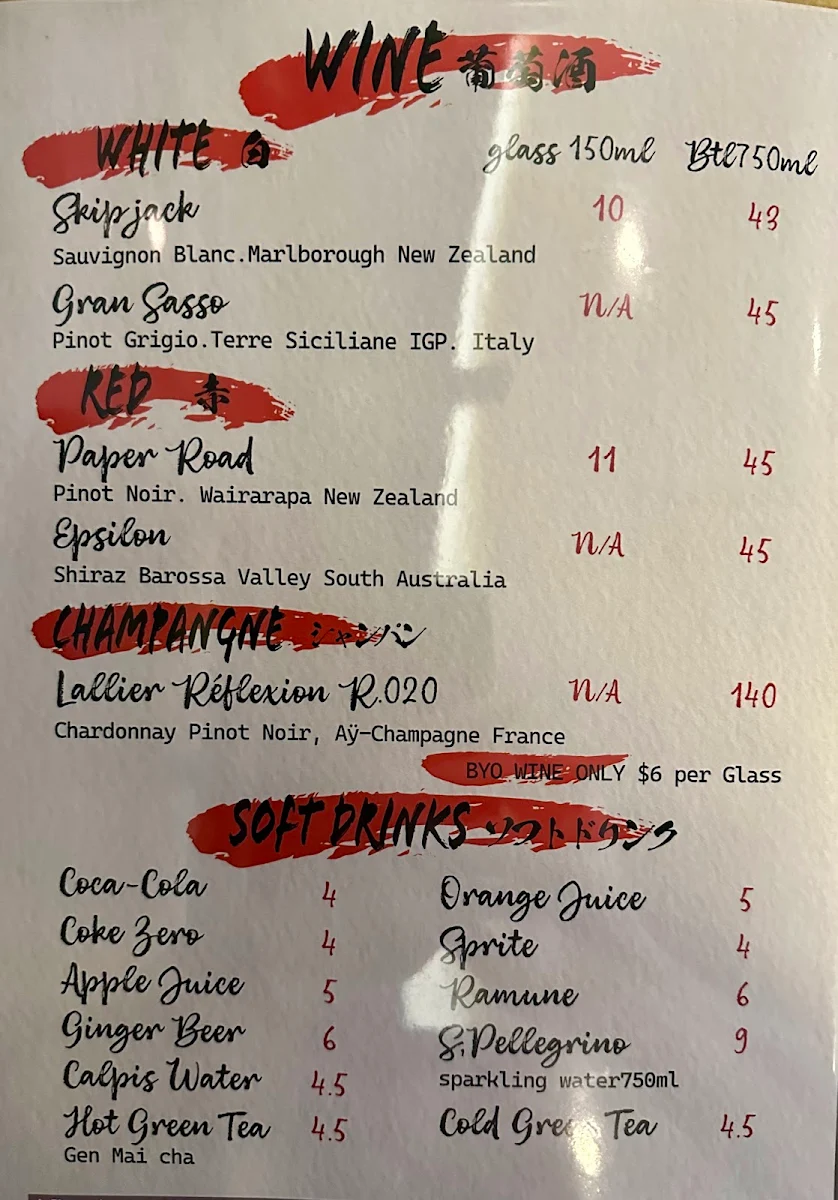 WINE 葡萄酒
WHITE 白 glass 150ml Btl750ml
Skipjack 10 43
Sauvignon Blanc.Marlborough New Zealand
Gran Sasso N/A 45
Pinot Grigio.Terre Siciliane IGP. Italy
RED 赤
Paper Road 11 45
Pinot Noir. Wairarapa New Zealand
Epsilon N/A 45
Shiraz Barossa Valley South Australia
CHAMPANGNE シャンパン
Lallier Réflexion R.020 N/A 140
Chardonnay Pinot Noir, Aÿ-Champagne France
BYO WINE ONLY $6 per Glass
SOFT DRINKS ソフトドリンク
Coca-Cola 4 Orange Juice 5
Coke Zero 4 Sprite 4
Apple Juice 5 Ramune 6
Ginger Beer 6 S.Pellegrino 9
Calpis Water 4.5 sparkling water750ml
Hot Green Tea 4.5 Cold Green Tea 4.5
Gen Mai cha